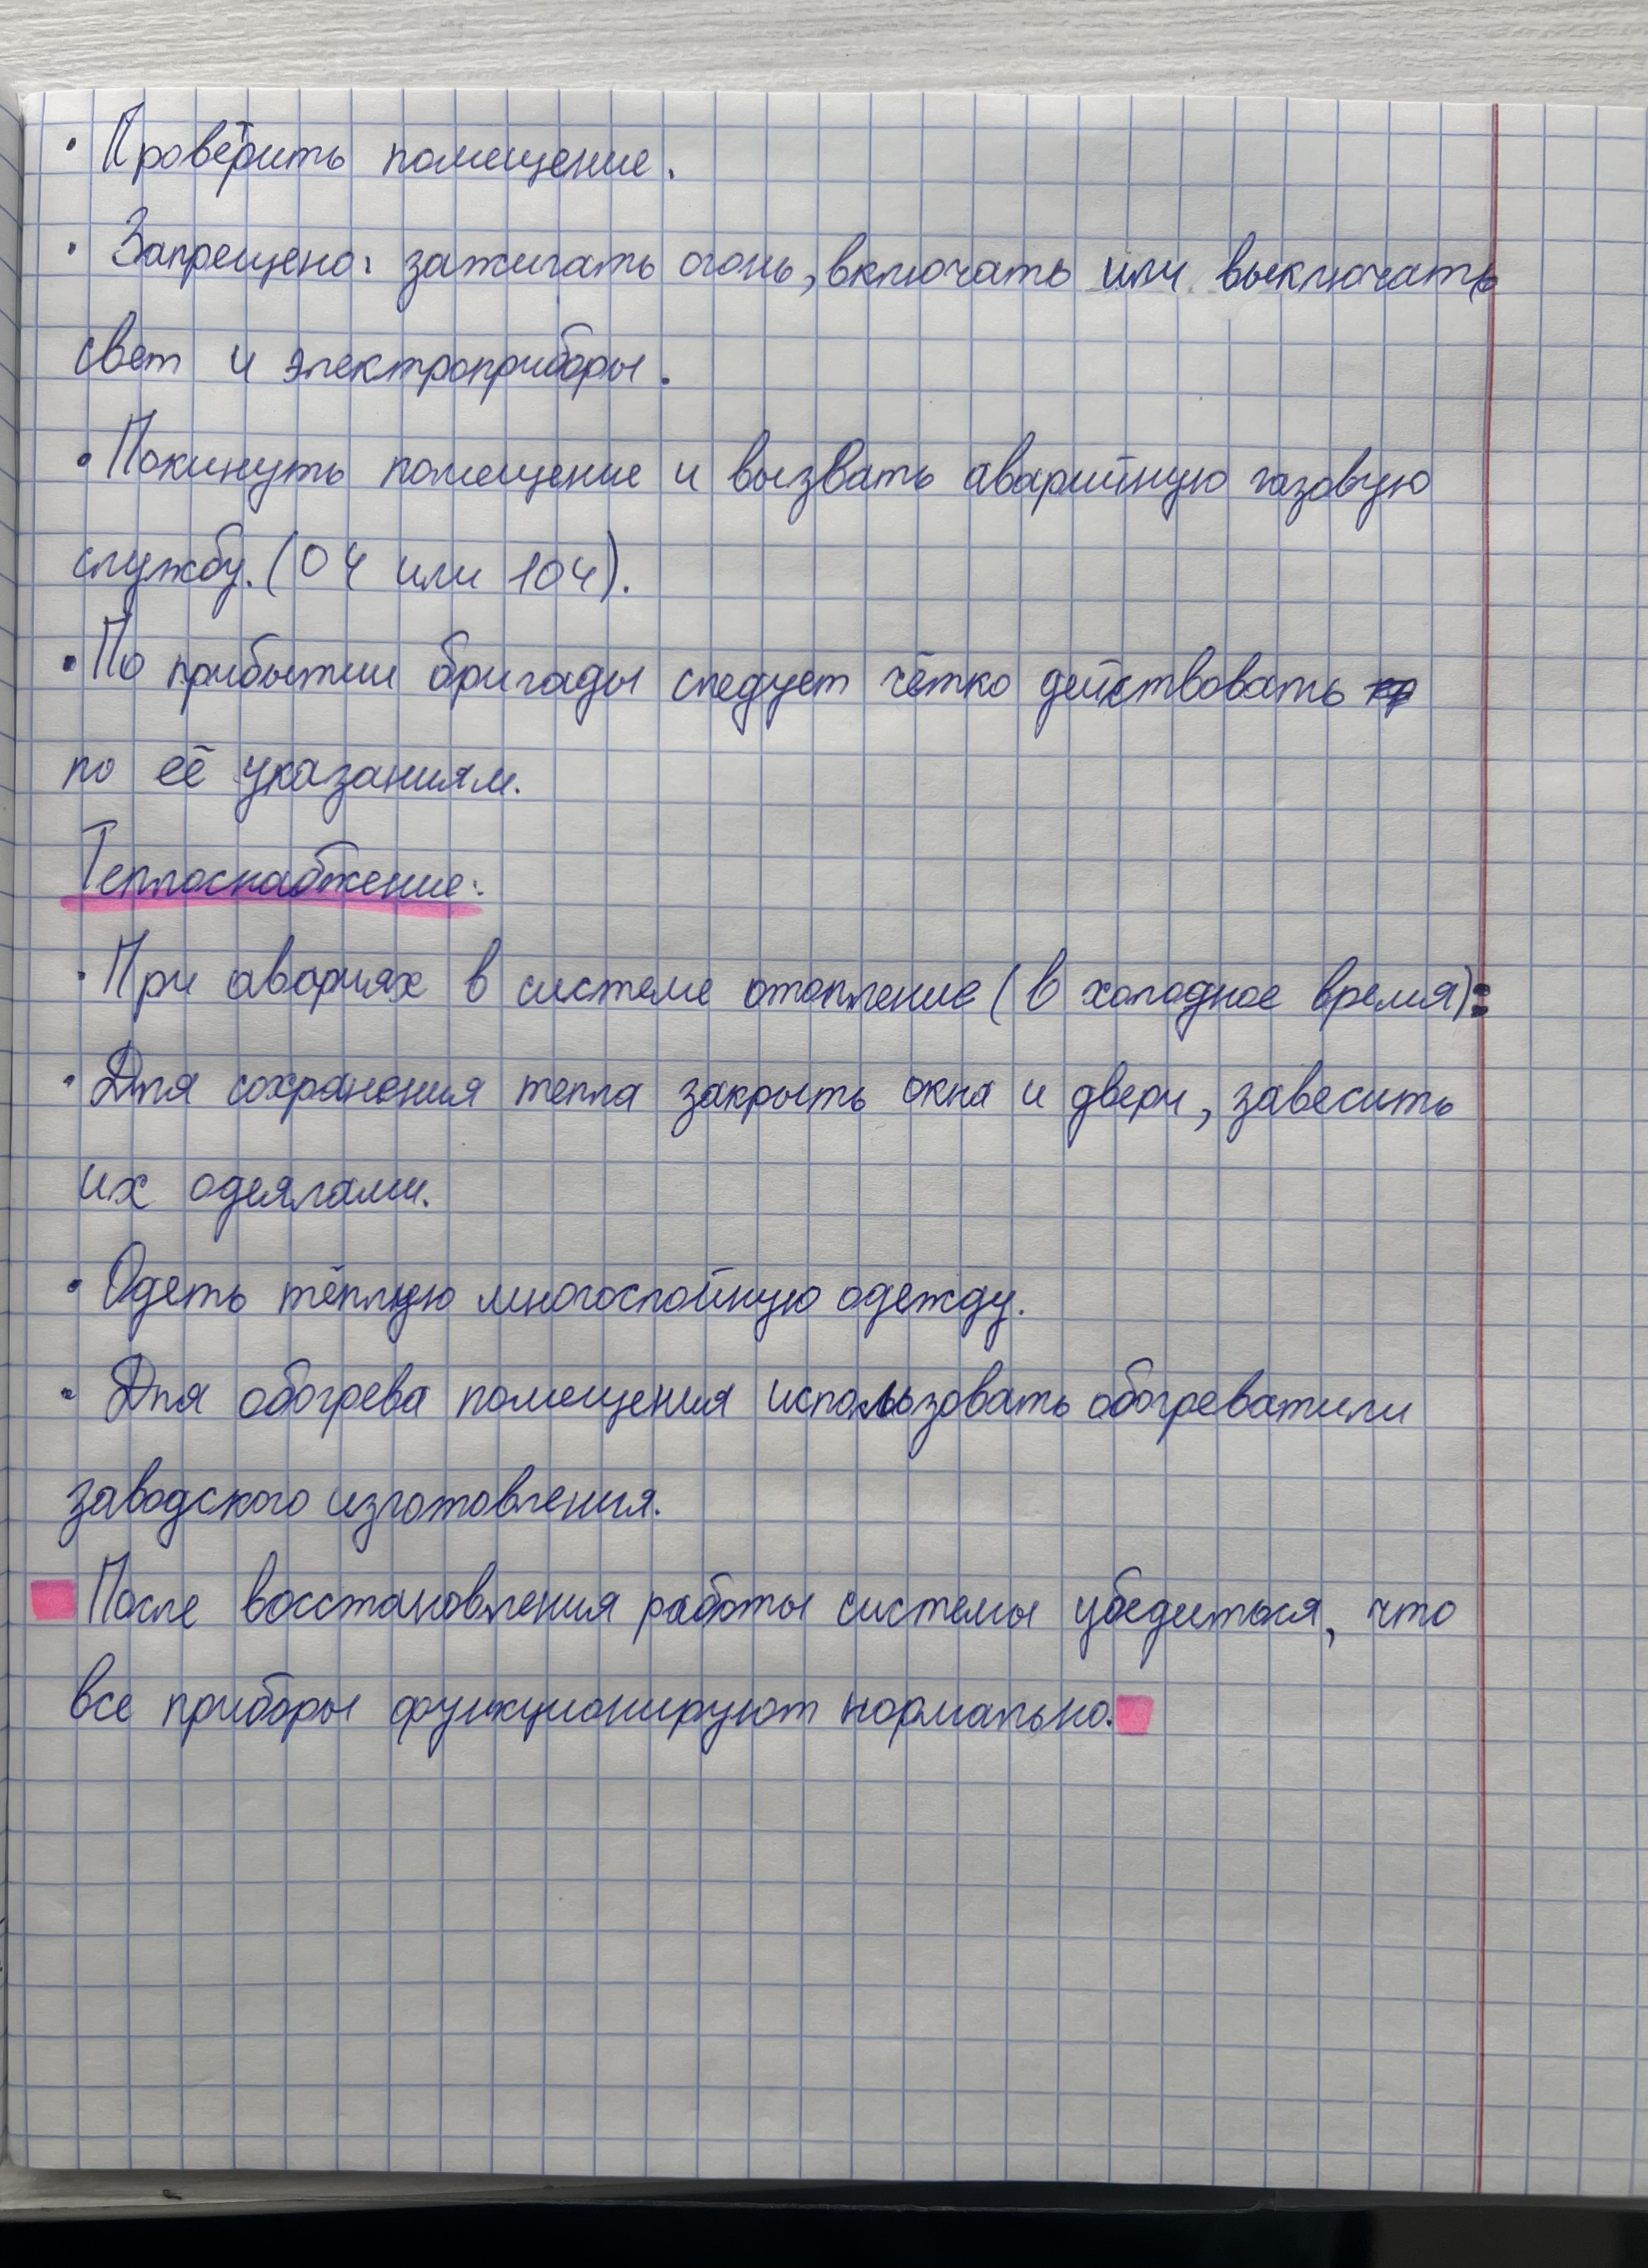 · Проветрить помещение.
· Запрещено: зажигать огонь, включать или выключать
свет и электроприборы.
· Покинуть помещение и вызвать аварийную газовую
службу. (04 или 104).
· По прибытии бригады следует чётко действовать
по её указаниям.
Теплоснабжение:
· При авариях в системе отопление (в холодное время):
· Для сохранения тепла закрыть окна и двери, завесить
их одеялами.
· Одеть тёплую многослойную одежду.
· Для обогрева помещения использовать обогреватили
заводского изготовления.
После восстановления работы системы убедиться, что
все приборы функционируют нормально.